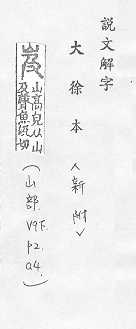 說文解字
大徐本 人新附✓
岌 山高皃从山
及聲魚汲切
(山部. V9下. P2. a4.)